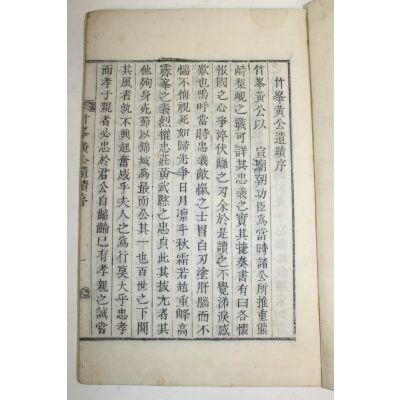 竹峯黃公遺蹟序
竹峯黃公以 宣廟朝功臣爲當時諸公所推重熊
峙梨峴之戰可詳其忠義之實其捷奏書有曰各懷
報國之心爭淬伏讎之刃余於是讀之不覺涕淚感
歎也嗚呼當時忠義敵愾之士冒白刃塗肝腦而不
惴不悔視死如歸光爭日月凜乎秋霜若趙重峰高
霽峯之義烈權忠莊黃武愍之忠貞此其拔尤者其
他殉身死節以錦城爲最而公其一也百世之下聞
其風者孰不興起奮感乎夫人之爲行莫大乎忠孝
而孝于親者必忠於君公自髫齡已有孝親之誠嘗
竹峯黃公遺蹟序 一